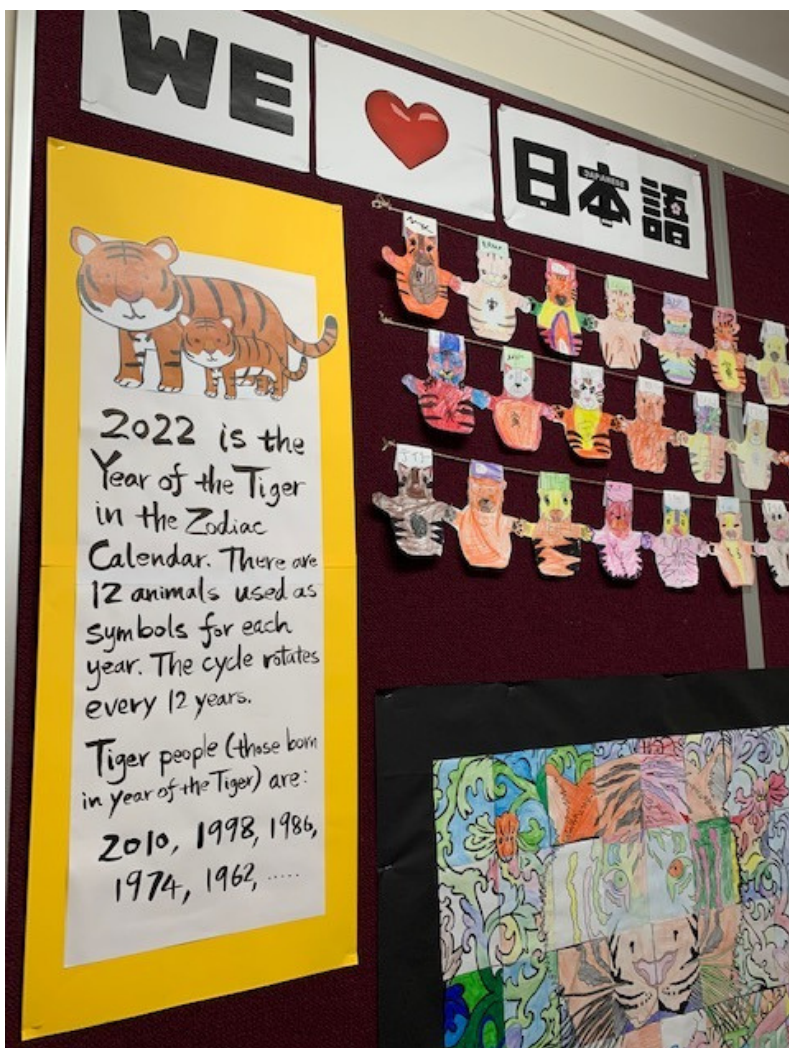 WE
日本語
JAPANESE
2022 is the
Year of the Tiger
in the Zodiac
Calendar. There are
12 animals used as
symbols for each
year. The cycle rotates
every 12 years.
Tiger people (those born
in year of the Tiger) are:
2010, 1998, 1986,
1974, 1962, .....